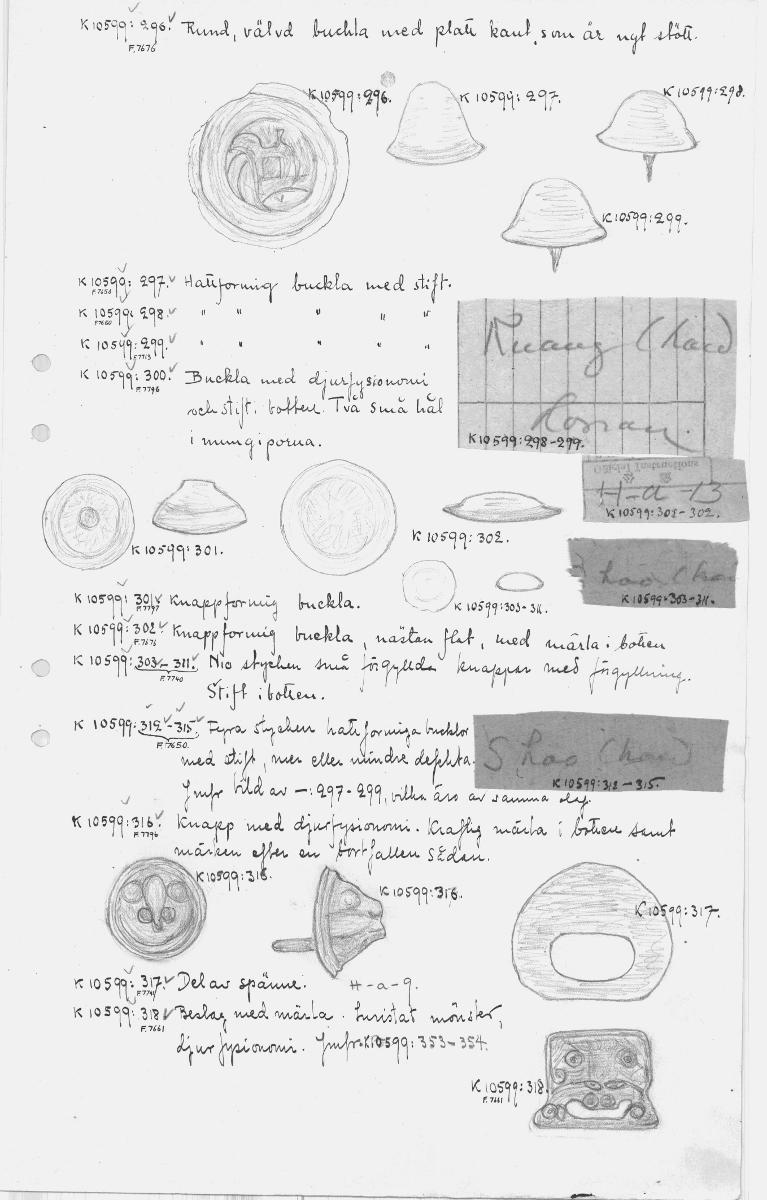 K 10599: 296. Rund, välvd buckla med platt kant, som är ngt stött.
F.7676
K 10599:296. K 10599:297. K 10599:298.
K 10599:299.
K 10599: 297. Hattformig buckla med stift.
K 10599: 298. " " " " "
K 10599: 299. " " " " "
F.7713
K 10599: 300. Buckla med djurfysionomi
F.7796
och stift i botten. Två små hål
i mungiporna.
K 10599:298-299.
Official Instructions
H-a-13
K 10599:301-302.
K 10599:301. K 10599:302.
K 10599:303-311.
K 10599:303-311.
K 10599: 301. Knappformig buckla.
F.7797
K 10599: 302. Knappformig buckla, nästan flat, med märla i botten
F.7676
K 10599: 303-311. Nio stycken små förgyllda knappar med förgyllning.
F.7740
Stift i botten.
K 10599: 312-315. Fyra stycken hattformiga bucklor
F.7650.
med stift, mer eller mindre defekta.
Jmfr bild av —: 297-299, vilka äro av samma slag.
K 10599:312-315.
K 10599: 316. Knapp med djurfysionomi. Kraftig märla i botten samt
F.7796
märken efter en bortfallen sådan.
K 10599:316. K 10599:316. K 10599:317.
K 10599: 317. Del av spänne. H-a-9.
K 10599: 318. Beslag med märla. Inristat mönster,
F.7661
djurfysionomi. Jmfr. K 10599: 353-354.
K 10599:318.
F.7661